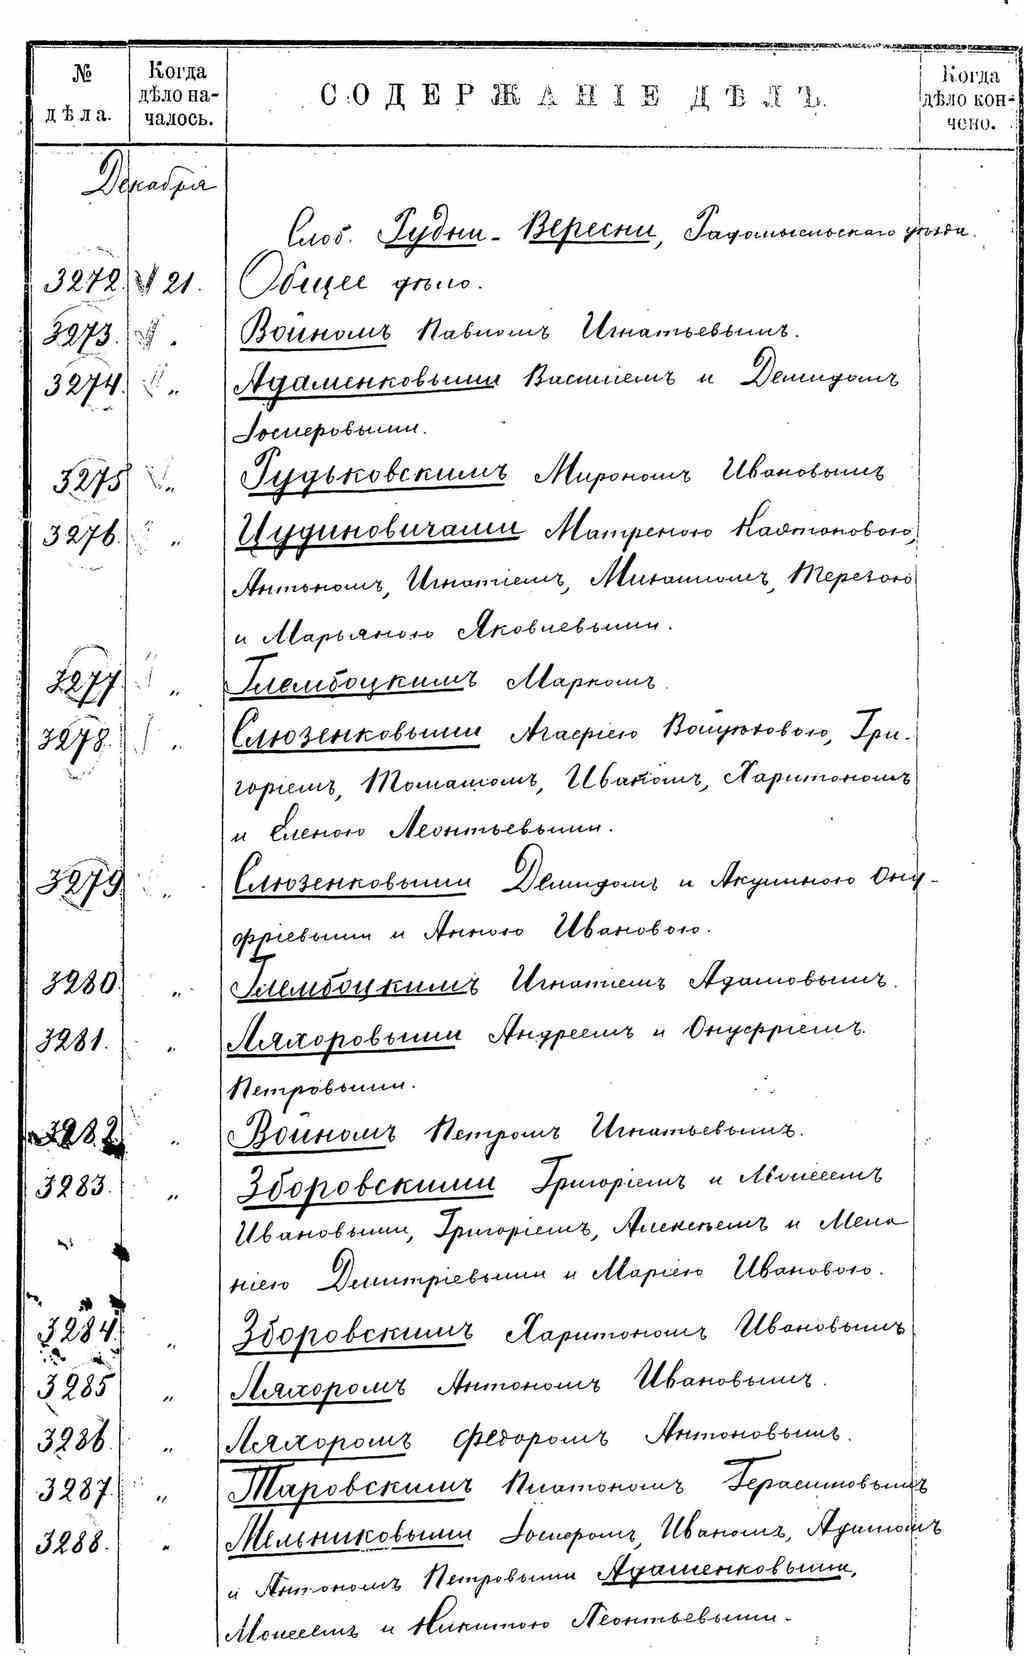 № дѣла.
Когда дѣло началось.
СОДЕРЖАНІЕ ДѢЛЪ.
Когда дѣло кончено.
Декабря
Слоб. Рудни-Вересни, Радомысльскаго уѣзда.
3272. 21. Общее дѣло.
3273. „ Войномъ Павломъ Игнатьевымъ.
3274. „ Адаменковыми Василіемъ и Демидомъ
Іосиповыми.
3275 „ Рудьковскимъ Мирономъ Ивановымъ
3276. „ Цудиновичами Матреною
Антономъ, Игнатіемъ, Терезою
и Марьяною Яковлевыми.
3277 „ Глембоцкимъ Маркомъ.
3278. „ Слюзенковыми Агафіею Гри-
горіемъ, Томашомъ, Иваномъ, Харитономъ
и Еленою Леонтьевыми.
3279 „ Слюзенковыми Демидомъ и Акулиною Ону-
фріевыми и Анною Ивановою.
3280. „ Глембоцкимъ Игнатіемъ Адамовымъ.
3281. „ Ляхоровыми Андреемъ и Онуфріемъ
Петровыми.
3282 „ Войномъ Петромъ Игнатьевымъ.
3283. „ Зборовскими Григоріемъ и Моисеемъ
Ивановыми, Григоріемъ, Алексѣемъ и Мела
ніею Дмитріевыми и Маріею Ивановою.
3284. „ Зборовскимъ Харитономъ Ивановымъ
3285 „ Ляхоромъ Антономъ Ивановымъ.
3286. „ Ляхоромъ Федоромъ Антоновымъ.
3287. „ Таровскимъ Платономъ Герасимовымъ
3288. „ Мельниковыми Іосипомъ, Иваномъ, Адамомъ
и Антономъ Петровыми Адаменковыми,
Моисеемъ и Никитою Леонтьевыми.